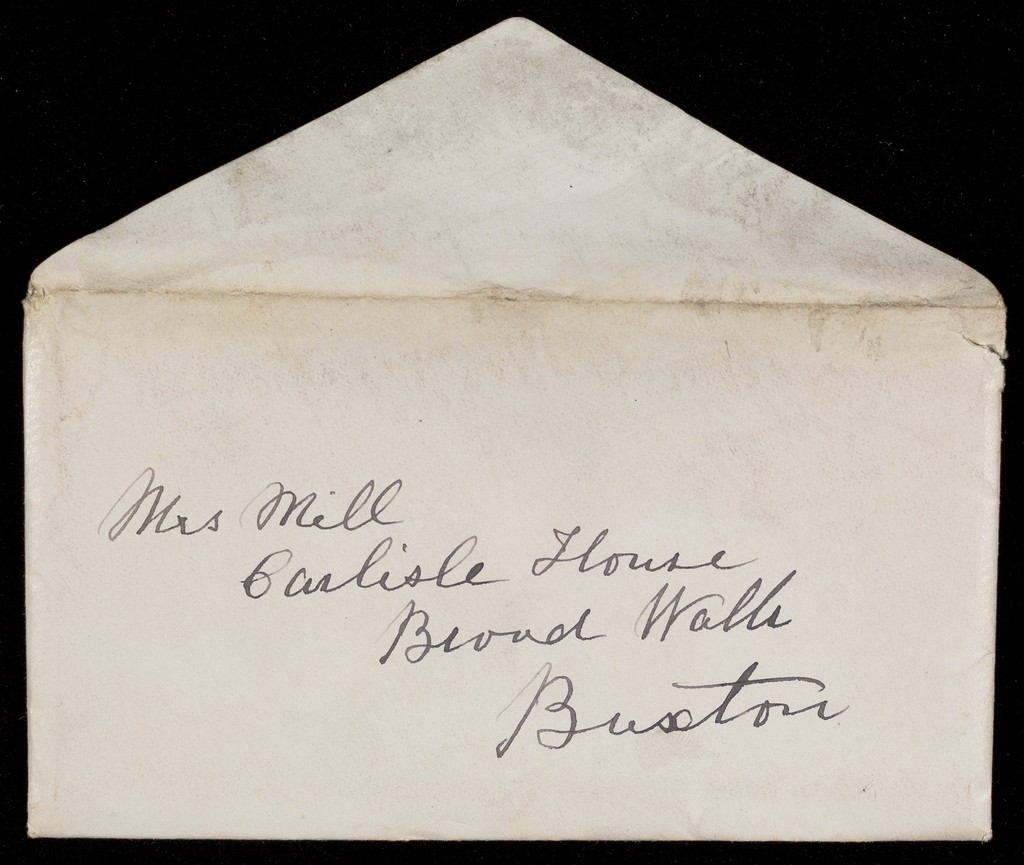 Mrs Mill
Carlisle House
Broad Walk
Buxton